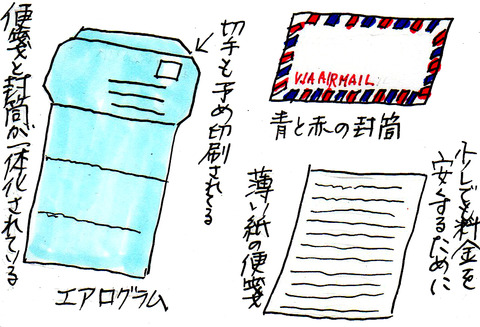 便箋と封筒が一体化されている
切手も予め印刷されてる
エアログラム
VIA AIRMAIL
青と赤の封筒
少しでも料金を
安くするために
薄い紙の便箋